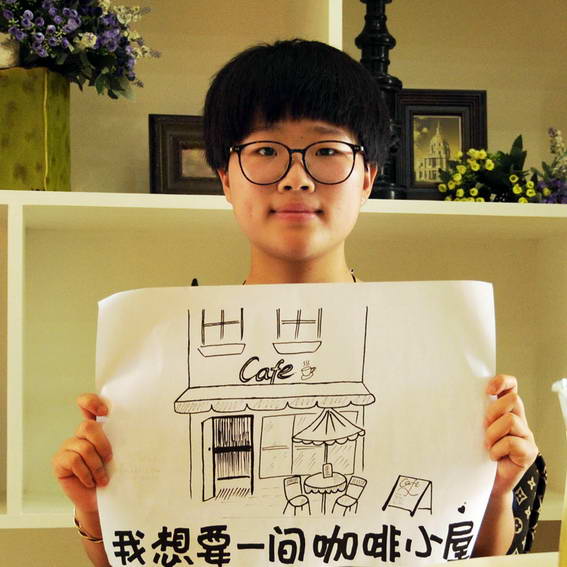 Cafe
Cafe
我想要一间咖啡小屋